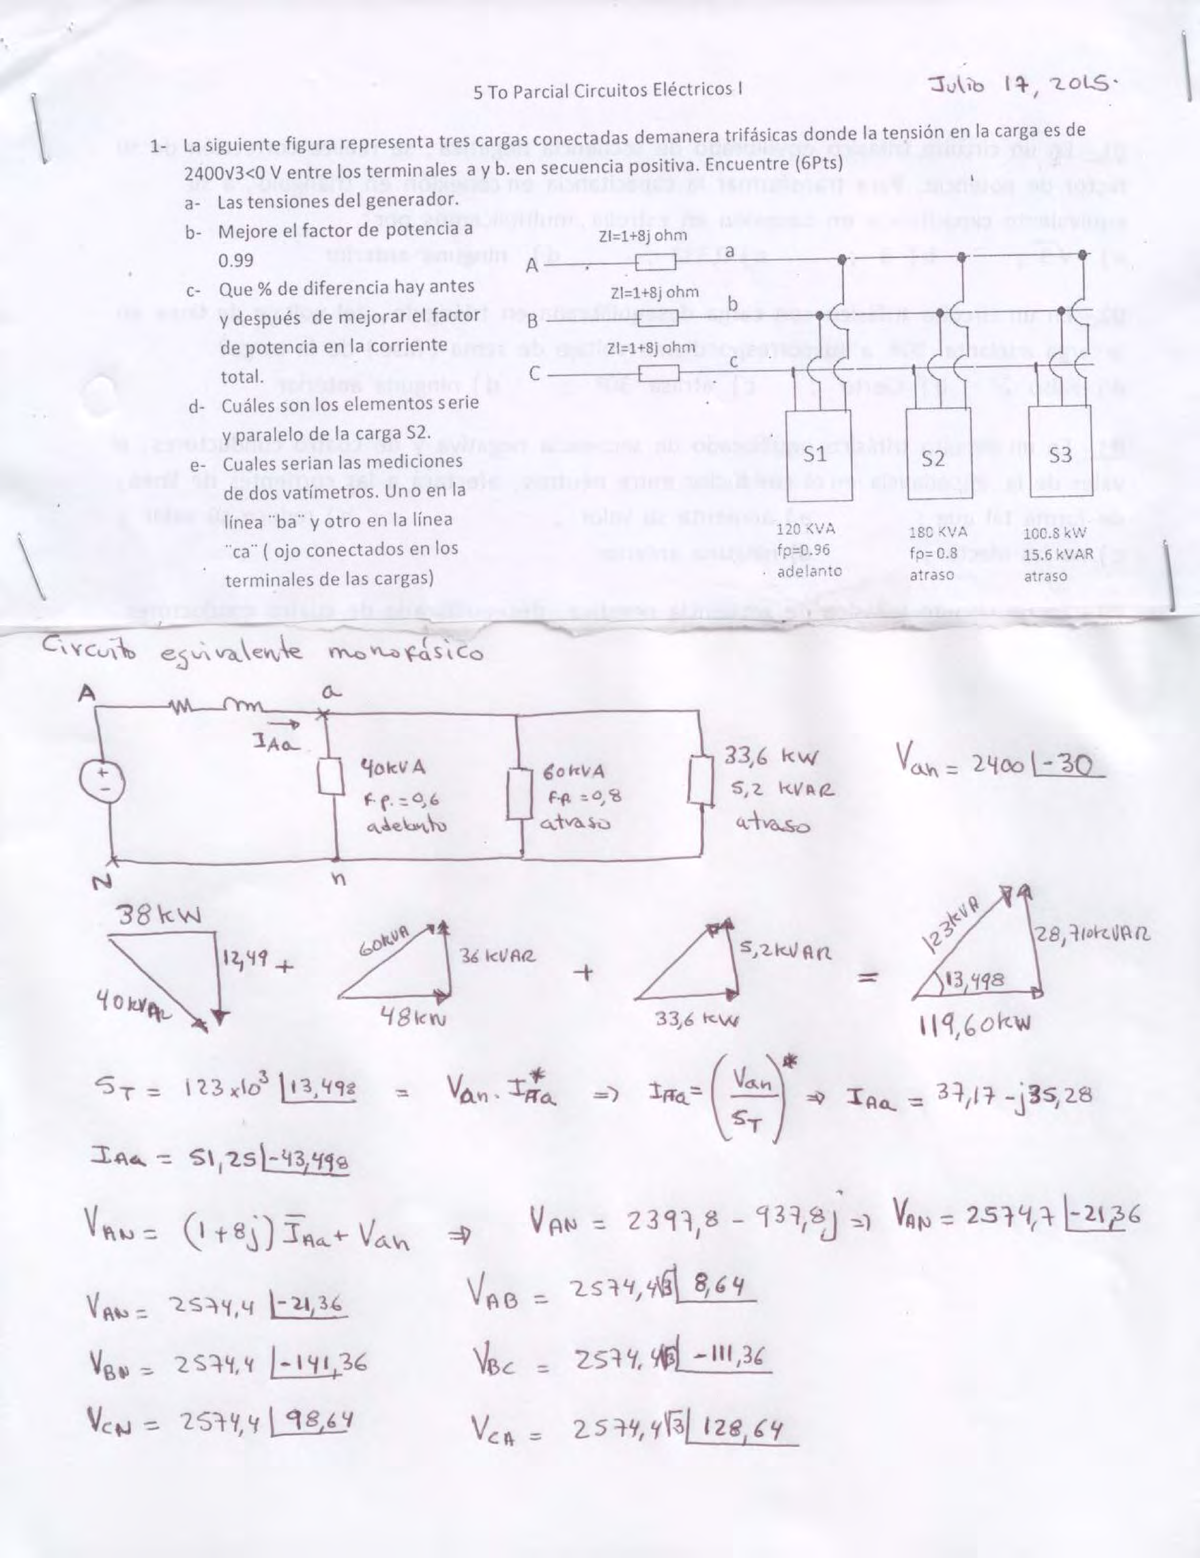 5 To Parcial Circuitos Eléctricos I
Julio 17, 2015.
1- La siguiente figura representa tres cargas conectadas demanera trifásicas donde la tensión en la carga es de
2400√3<0 V entre los terminales a y b. en secuencia positiva. Encuentre (6Pts)
a- Las tensiones del generador.
b- Mejore el factor de potencia a
0.99
c- Que % de diferencia hay antes
y después de mejorar el factor
de potencia en la corriente
total.
d- Cuáles son los elementos serie
y paralelo de la carga S2.
e- Cuales serian las mediciones
de dos vatímetros. Uno en la
línea ¨ba¨ y otro en la línea
¨ca¨ ( ojo conectados en los
terminales de las cargas)
Zl=1+8j ohm
A a
Zl=1+8j ohm
B b
Zl=1+8j ohm
C c
S1 S2 S3
120 KVA
fp=0.96
adelanto
180 KVA
fp= 0.8
atraso
100.8 kW
15.6 kVAR
atraso
Circuito equivalente monofásico
A a
I Aa
+
-
N n
40kVA
F.P. = 0,6
adelanto
60kVA
F.P. = 0,8
atraso
33,6 kW
5,2 KVAR
atraso
Van = 2400 ∠-30
38kW
12,49
40kVAR
+
60kVA
36 kVAR
48kW
+
5,2kVAR
33,6 kW
=
123kVA
28,710kVAR
13,498
119,60kW
S T = 123x10³ ∠13,498 = Van . I Aa* => I Aa = (Van / S T)* => I Aa = 37,17 - j35,28
I Aa = 51,25 ∠-43,498
V AN = (1+8j) I Aa + Van => V AN = 2397,8 - 937,8j => V AN = 2574,7 ∠-21,36
V AN = 2574,4 ∠-21,36
V AB = 2574,4√3 ∠8,64
V BN = 2574,4 ∠-141,36
V BC = 2574,4√3 ∠-111,36
V CN = 2574,4 ∠98,64
V CA = 2574,4√3 ∠128,64